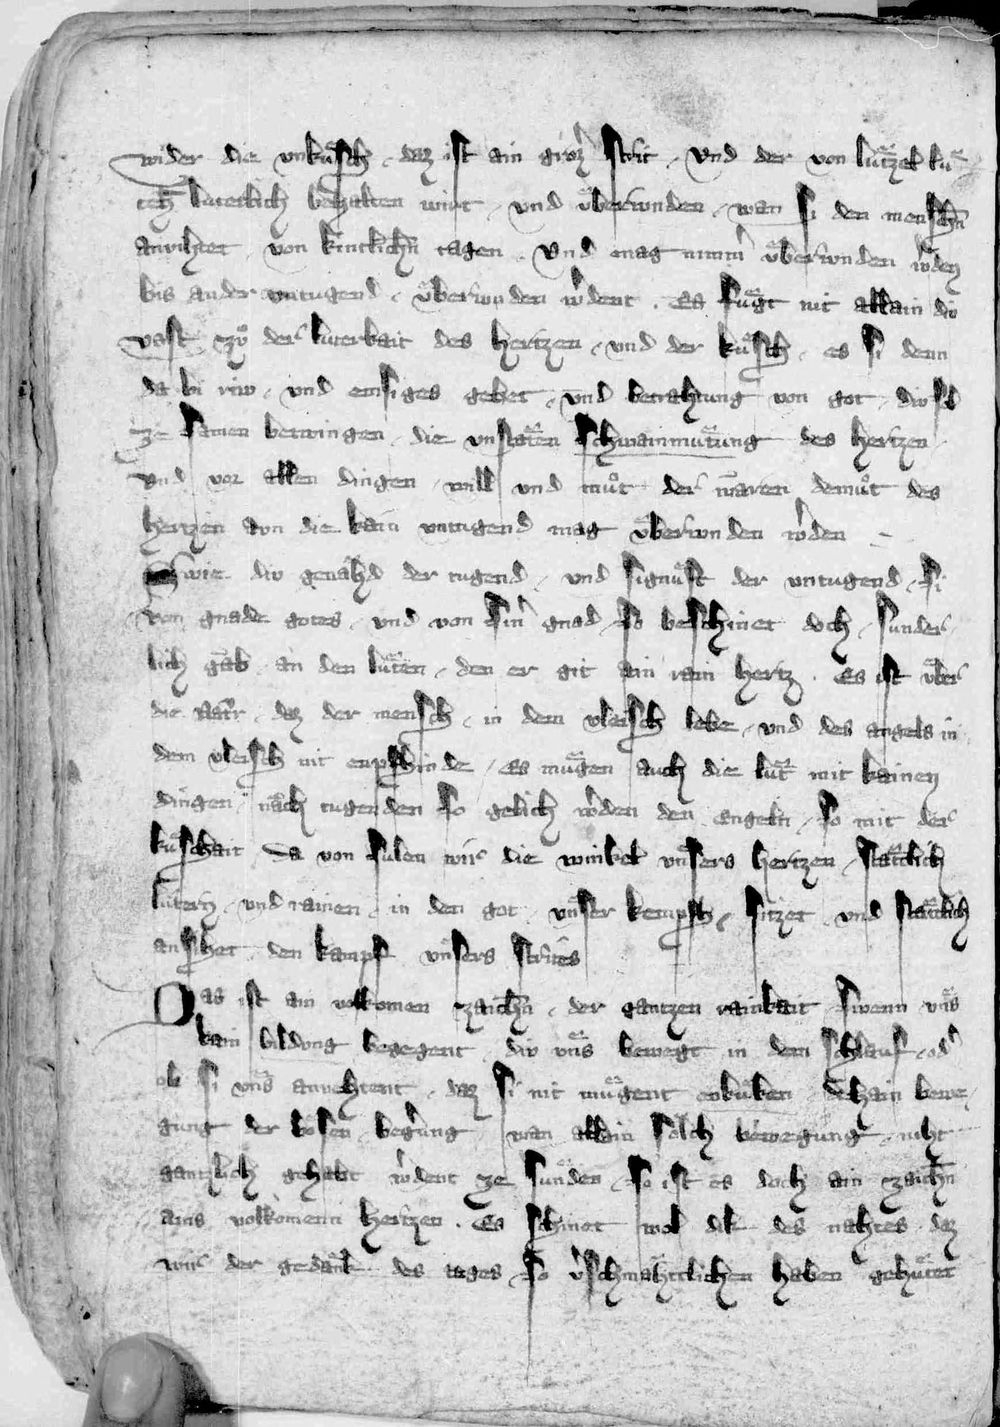 wider die unkuͤsch . daz ist ain groz' strit . Und der von luͤtzel luͤ
ten luterlich behalten wirt . und uͤberwnden . wan si den menschn̄
anvihtet . von kintlichn̄ tagen . Und mag nimm' uͤberwnden w'den
bis ander untugend . uͤberwnden w'dent . Es fuͤgt nit allain div
vast zuͦ der luterkait des hertzen . und der kuͤsch . es si denn
da bi riw . und emsiges gebet . und betrahtung von got . div sol
ze samen betwingen . die unstaͤten schwainmuͤtung des hertzen .
und vor allen dingen . will und muͦt der waren demuͦt des
hertzen aun die kain untugend mag uͤberwnden w'den
Swie div genaͤhd der tugend . und signuͤft der untugend . si
von gnade gotes . und von sin' gnad . So beschinet doch . sunder
lich gab . an den luͤten . den er git ain rain hertz . Es ist uͤber
die Natur . daz der mensch . in dem vlaisch lebe . und des angels in
dem vleisch nit enpfhinde . Es muͤgen auch die luͤt mit kainen
dingen . nach tugenden so gelich w'den den Engeln . so mit der
kuͤschait . Da von sulen wir die winkel unsers hertzen . staͤtlich
lutern . und rainen . in den got . unser kempfh . sitzet . und staͤtlich
ansihet . den kampf unsers strites
Das ist ain volkomen zaichn̄ . der gantzen rainkait . swenn uns
kain bildung begegent . div uns bewegt in dem schlauf . od'
ob si uns anvehtent . daz si nit muͤgent erkuͤken . dehain bewe
gung der boͤsen begerung wan allain soͤlch bewegung . niht
gantzlich gehabt w'dent ze sunden . so ist es doch ain zaichn̄
ains volkomenn hertzen . Es schinet wol dik des nahtes . daz
wir der gedaͤnk des tages so v'schmaͤhtlichen haben gehuͤtet